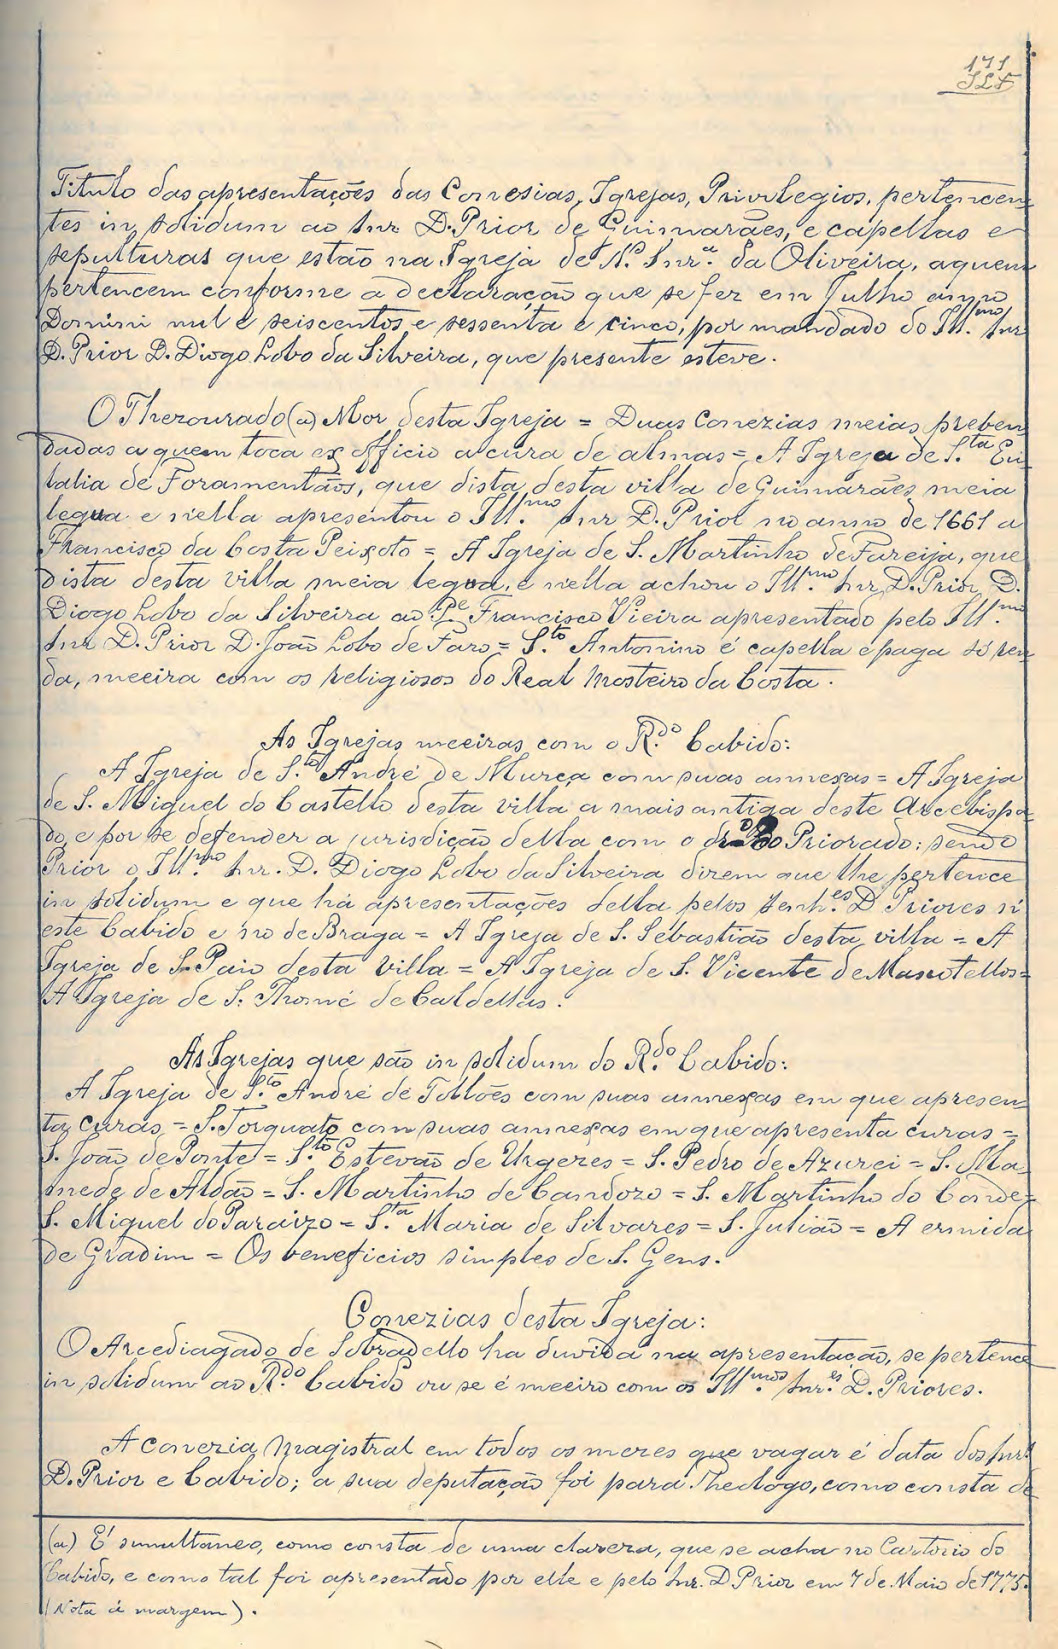 171
Titulo das apresentações das Conesias, Igrejas, Privilegios, pertencen-
tes in solidum ao Snr D. Prior de Guimarães, e capellas e
sepulturas que estão na Igreja de N.ª Snr.ª da Oliveira, a quem
pertencem conforme a declaração que se fez em Julho anno
Domini mil e seiscentos e sessenta e cinco, por mandado do Ill.mo Snr
D. Prior D. Diogo Lobo da Silveira, que presente esteve.
O Thezourado (a) Mor desta Igreja = Duas Conezias meias preben-
dadas a quem toca ex officio a cura de almas = A Igreja de S.ta Eu-
lalia de Foramentãos, que dista desta villa de Guimarães meia
legua e n'ella apresentou o Ill.mo Snr D. Prior no anno de 1661 a
Francisco da Costa Peixoto = A Igreja de S. Martinho de Fareija, que
dista desta villa meia legua, e n'ella achou o Ill.mo Snr D. Prior D.
Diogo Lobo da Silveira ao P.e Francisco Vieira apresentado pelo Ill.mo
Snr D. Prior D. João Lobo de Faro = S.to Antonino é capella e paga só ren-
da, meeira com os religiosos do Real Mosteiro da Costa.
As Igrejas meeiras com o R.do Cabido:
A Igreja de S.to André de Murça com suas annexas = A Igreja
de S. Miguel do Castello desta villa a mais antiga deste Arcebispa-
do, e por se defender a jurisdição della com o do Priorado: sendo
Prior o Ill.mo Snr. D. Diogo Lobo da Silveira dizem que lhe pertence
in solidum e que há apresentações della pelos Senh.es D Priores n'
este Cabido e no de Braga = A Igreja de S. Sebastião desta villa = A
Igreja de S. Paio desta Villa = A Igreja de S. Vicente de Mascotellos =
A Igreja de S. Thomé de Caldellas.
As Igrejas que são in solidum do R.do Cabido:
A Igreja de S.to André de Tollões com suas annexas em que apresen-
ta curas = S. Torquato com suas annexas em que apresenta curas =
S. João de Ponte = S.to Estevão de Urgezes = S. Pedro de Azurei = S. Ma-
mede de Aldão = S. Martinho de Candozo = S. Martinho do Conde =
S. Miguel do Paraizo = S.ta Maria de Silvares = S. Julião = A ermida
de Gradim = Os beneficios simples de S. Gens.
Conezias desta Igreja:
O Arcediagado de Sobradello ha duvida na apresentação, se pertence
in solidum ao R.do Cabido ou se é meeiro com os Ill.mos Snr.es D. Priores.
A conezia Magistral em todos os mezes que vagar é data dos Snrs
D. Prior e Cabido; a sua deputação foi para Theologo, como consta de
(a) É simultaneo, como consta de uma clareza, que se acha no Cartorio do
Cabido, e como tal foi apresentado por elle e pelo Snr. D Prior em 7 de Maio de 1775.
(Nota á margem).